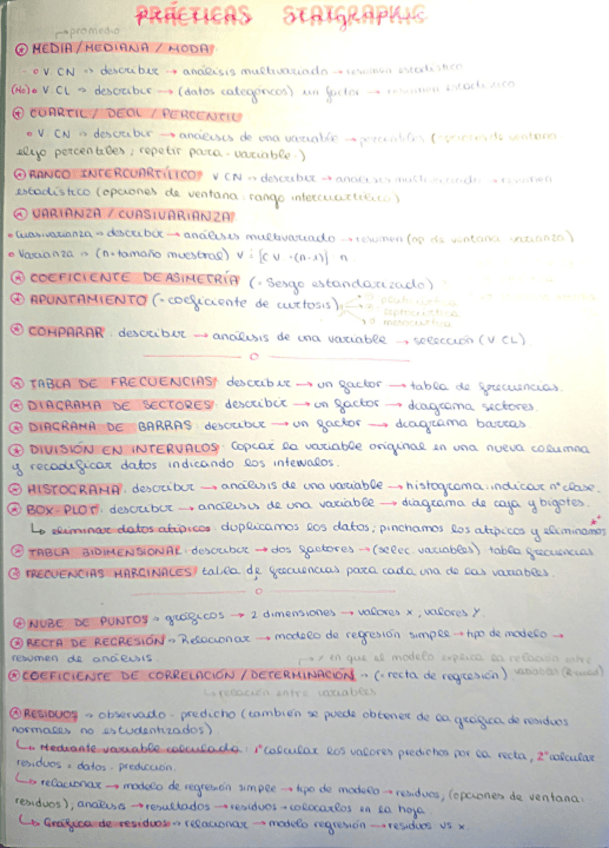 PRÁCTICAS STATGRAPHIC
→promedio
* MEDIA / MEDIANA / MODA
o V. CN => describir → análisis multivariado → resumen estadístico
(Mo) o V CL => describir → (datos categóricos) un factor → resumen estadístico
* CUARTIL / DECIL / PERCENTIL
o V. CN => describir → análisis de una variable → percentiles (opciones de ventana
elijo percentiles; repetir para variable.)
* RANGO INTERCUARTÍLICO V CN => describir → análisis multivariado → resumen
estadístico (opciones de ventana: rango intercuartílico)
* VARIANZA / CUASIVARIANZA
• Cuasivarianza => describir → análisis multivariado → resumen (op de ventana varianza)
• Varianza => (n = tamaño muestral) V = [C V · (n-1)] n
* COEFICIENTE DE ASIMETRÍA (= Sesgo estandarizado)
* APUNTAMIENTO (= coeficiente de curtosis)
* COMPARAR: describir → análisis de una variable → selección (V CL).
* TABLA DE FRECUENCIAS: describir → un factor → tabla de frecuencias.
* DIAGRAMA DE SECTORES: describir → un factor → diagrama sectores.
* DIAGRAMA DE BARRAS: describir → un factor → diagrama barras.
* DIVISIÓN EN INTERVALOS: Copiar la variable original en una nueva columna
y recodificar datos indicando los intervalos.
* HISTOGRAMA: describir → análisis de una variable → histograma: indicar nº clase.
* BOX-PLOT: describir → análisis de una variable → diagrama de caja y bigotes.
↳ eliminar datos atípicos: duplicamos los datos, pinchamos los atípicos y eliminamos
* TABLA BIDIMENSIONAL: describir → dos factores → (selec. variables) tabla frecuencias
* FRECUENCIAS MARGINALES: tabla de frecuencias para cada una de las variables.
* NUBE DE PUNTOS => gráficos → 2 dimensiones → valores x, valores y.
* RECTA DE REGRESIÓN => Relacionar → modelo de regresión simple → tipo de modelo →
resumen de análisis.
en que el modelo explica la relación entre
* COEFICIENTE DE CORRELACIÓN / DETERMINACIÓN => (= recta de regresión) variables
↳ relación entre variables
* RESIDUOS => observado - predicho (también se puede obtener de la gráfica de residuos
normales no estudentizados)
↳ Mediante variable calculada: 1º calcular los valores predichos por la recta, 2º calcular
residuos = datos - predicción.
↳ relacionar → modelo de regresión simple → tipo de modelo → residuos, (opciones de ventana:
residuos), análisis → resultados → residuos → colocarlos en la hoja
↳ Gráfica de residuos => relacionar → modelo regresión → residuos vs x.